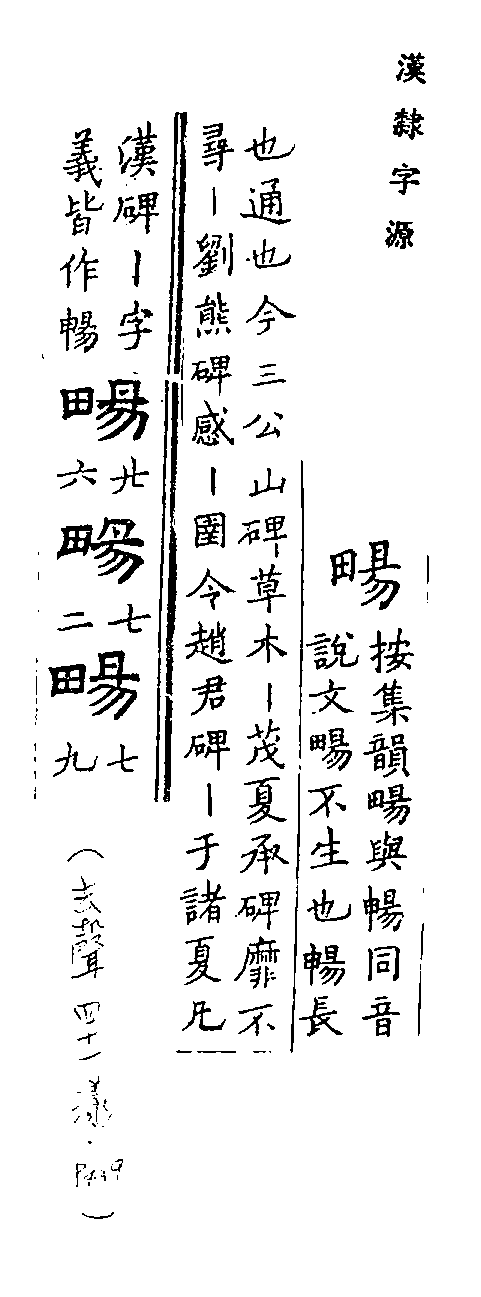 漢隸字源
畼
按集韻畼與暢同音
說文畼不生也暢長
也通也今三公山碑草木丨茂夏承碑靡不
尋丨劉熊碑感丨圉令趙君碑丨于諸夏凡
漢碑丨字
義皆作暢
畼
廿六
畼
七二
畼
七九
(去聲 四十一 漾.)